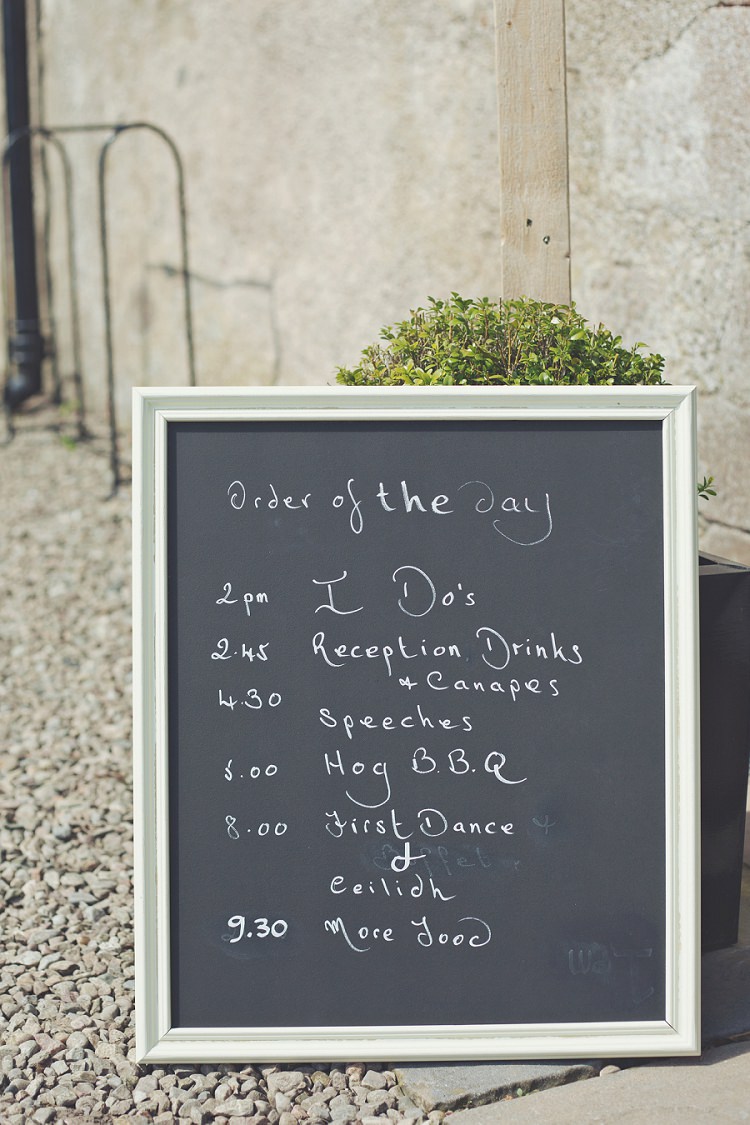 Order of the day
2pm I Do's
2.45 Reception Drinks
& Canapes
4.30 Speeches
5.00 Hog B.B.Q
8.00 First Dance
&
Ceilidh
9.30 More Food